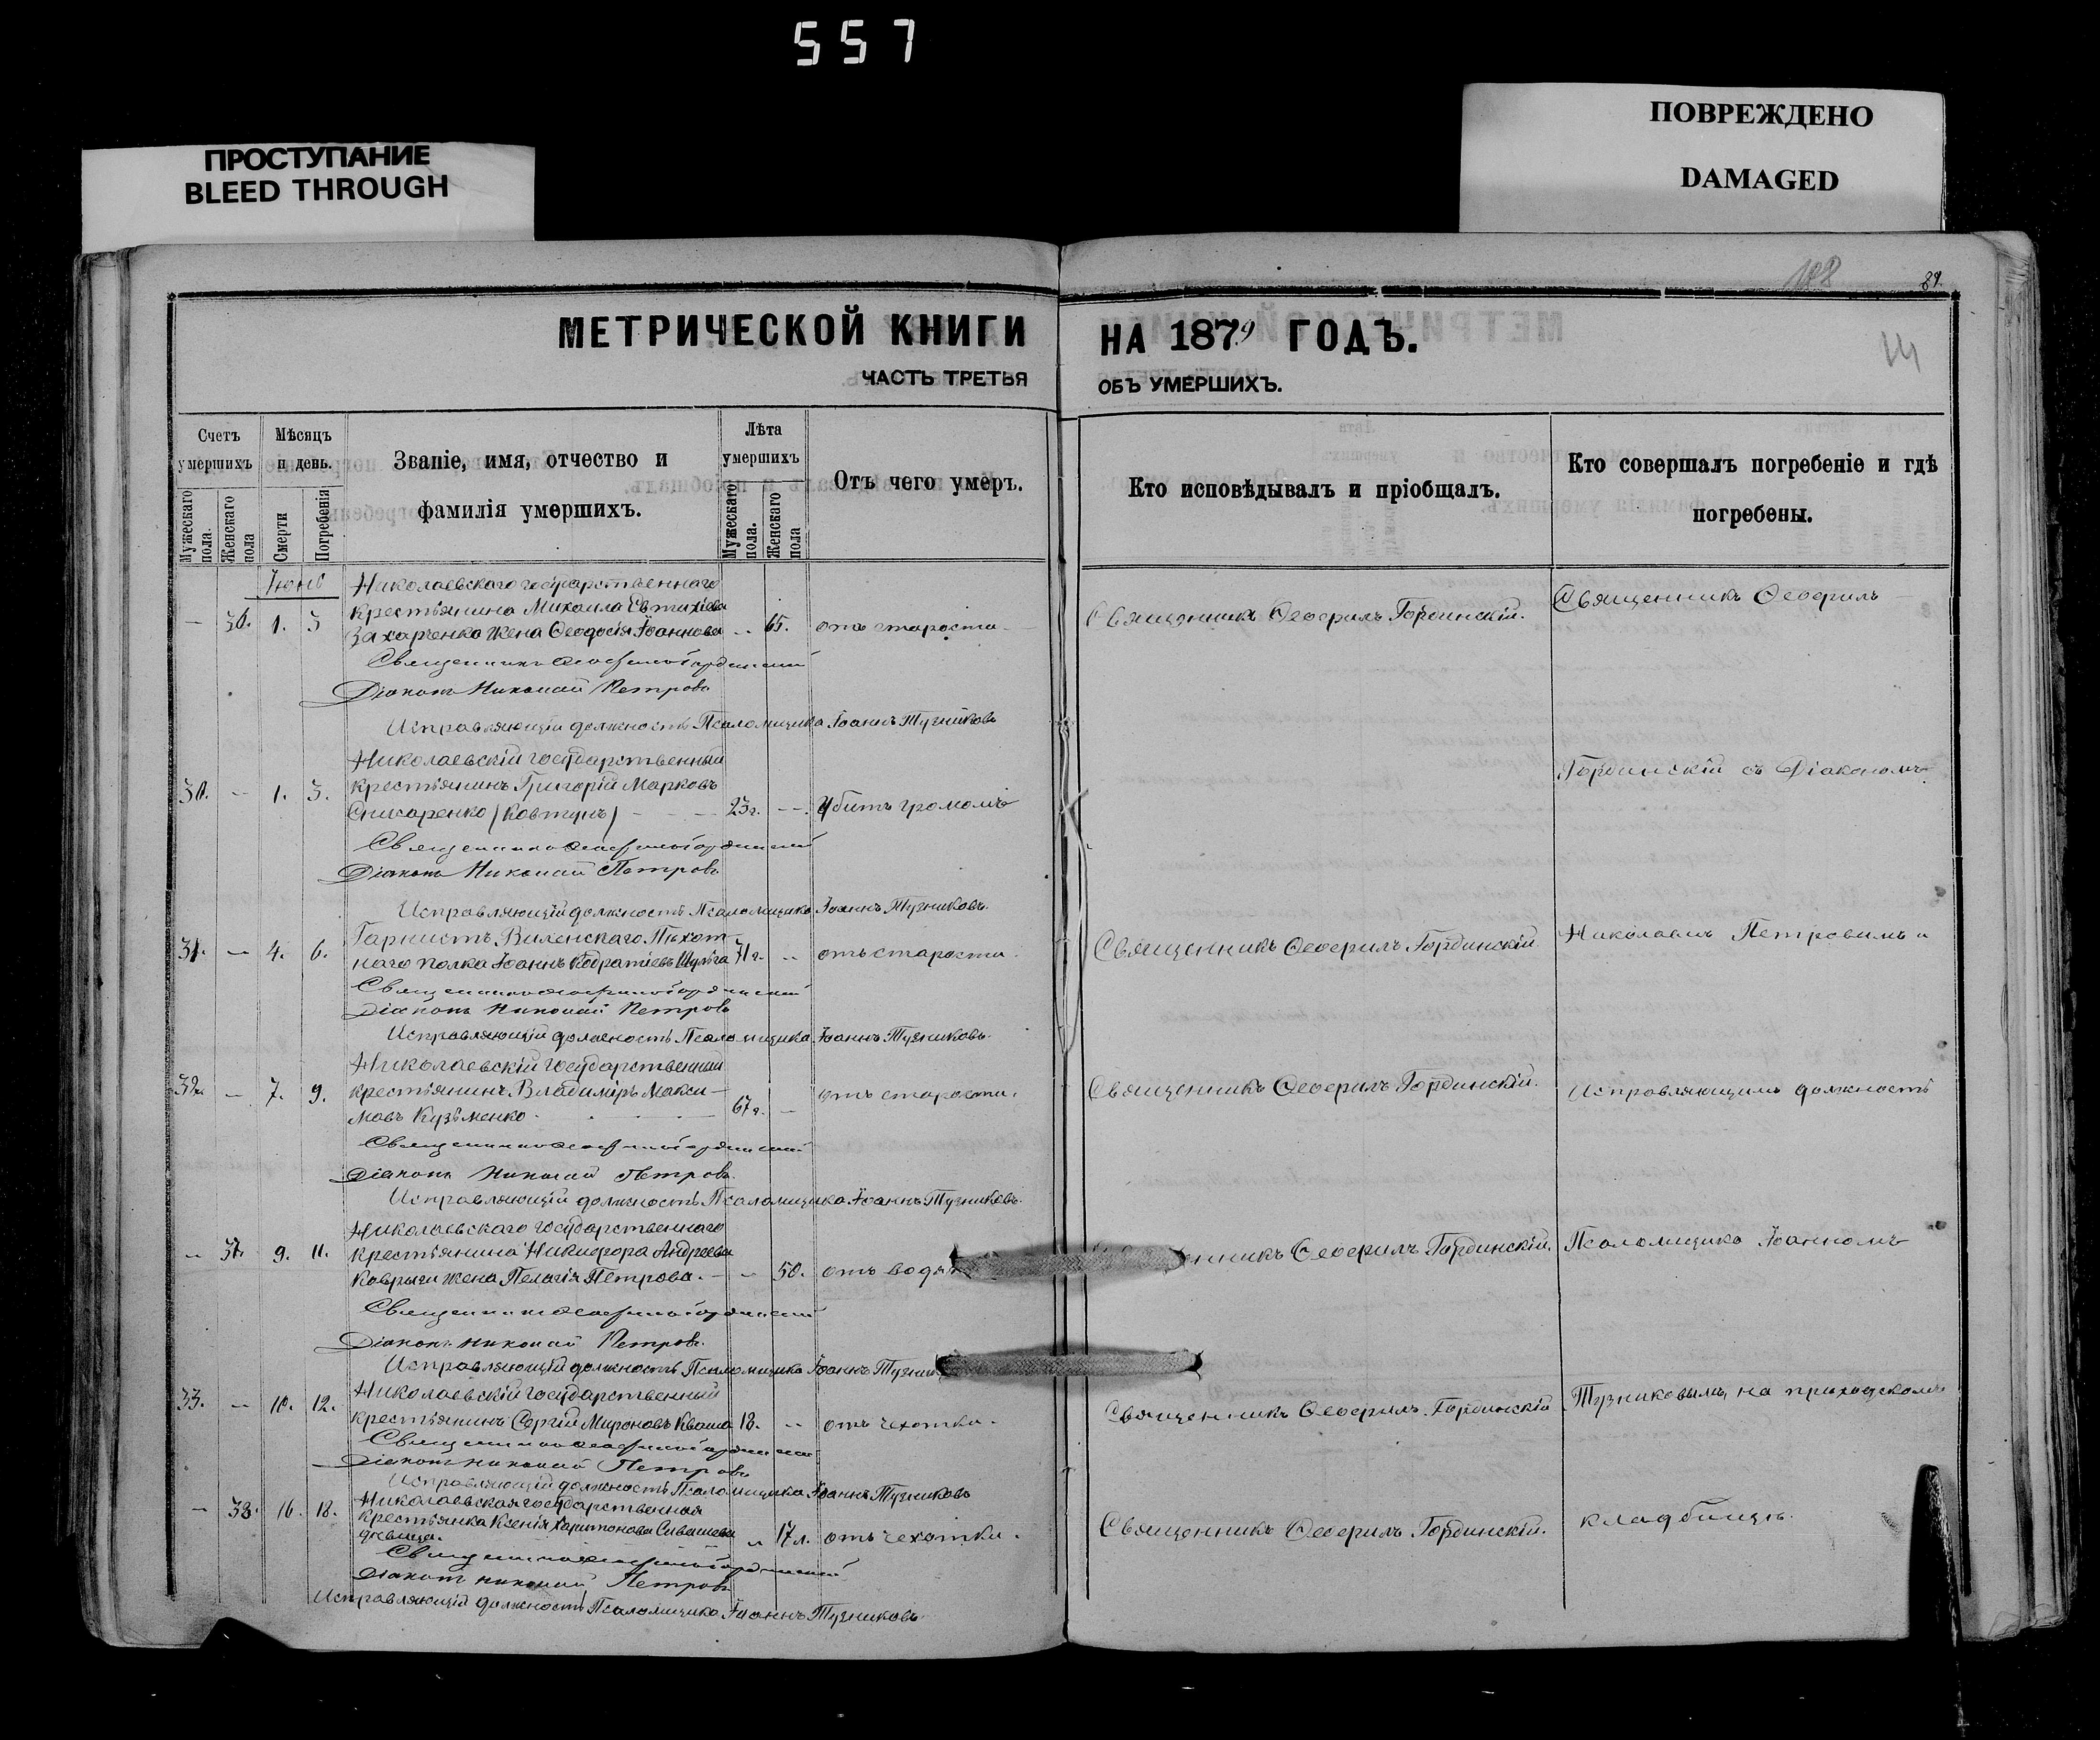 557
ПРОСТУПАНИЕ
BLEED THROUGH
ПОВРЕЖДЕНО
DAMAGED
188
МЕТРИЧЕСКОЙ КНИГИ
НА 1879 ГОДЪ.
ЧАСТЬ ТРЕТЬЯ
ОБЪ УМЕРШИХЪ.
Счетъ умершихъ
Мужескаго пола.
Женскаго пола
Мѣсяцъ и день.
Смерти
Погребенія
Званіе, имя, отчество и
фамилія умершихъ.
Лѣта умершихъ
Мужескаго пола.
Женскаго пола
Отъ чего умеръ.
Кто исповѣдывалъ и пріобщалъ.
Кто совершалъ погребеніе и гдѣ
погребены.
Іюнь
Николаевскаго государственнаго
— 36. 1. 3 крестьянина Михаила Евтихіева
Захарченко жена Ѳеодосія Іоаннова -- 65. отъ старости
Священникъ Ѳеофилъ Гординскій.
Священникъ Ѳеофилъ
Священникъ Ѳеофилъ Гординскій
Діаконъ Николай Петровъ
Исправляющій должность Псаломщика Іоаннъ Тузниковъ
Николаевскій государственный
30. -- 1. 3. крестьянинъ Григорій Марковъ
(Ковтунъ) 23 г. -- Убитъ громомъ
Гординскій съ Діакономъ
Священникъ Ѳеофилъ Гординскій
Діаконъ Николай Петровъ
Исправляющій должность Псаломщика Іоаннъ Тузниковъ.
31. — 4. 6. Горнистъ Виленскаго Пѣхот-
наго полка Іоаннъ Кодратіевъ Шульга 71 г. -- отъ старости.
Священникъ Ѳеофилъ Гординскій.
Николаемъ Петровымъ и
Священникъ Ѳеофилъ Гординскій
Діаконъ Николай Петровъ
Исправляющій должность Псаломщика Іоаннъ Тузниковъ.
Николаевскій Государственный
32. — 7. 9. крестьянинъ Владиміръ Макси-
мовъ Кузьменко 67 г. — отъ старости.
Священникъ Ѳеофилъ Гординскій.
Исправляющимъ должность
Священникъ Ѳеофилъ Гординскій
Діаконъ Николай Петровъ.
Исправляющій должность Псаломщика Іоаннъ Тузниковъ.
Николаевскаго Государственнаго
— 37. 9. 11. крестьянина Никифора Андреева
Коврыги жена Пелагія Петрова. -- 50. отъ водян
нникъ Ѳеофилъ Гординскій.
Псаломщика Іоанномъ
Священникъ Ѳеофилъ Гординскій
Діаконъ Николай Петровъ.
Исправляющій должность Псаломщика Іоаннъ Тузник
Николаевскій Государственный
33. — 10. 12. крестьянинъ Сергій Мироновъ Кваша 18. -- отъ чахотки.
Священникъ Ѳеофилъ Гординскій
Тузниковымъ, на приходскомъ
Священникъ Ѳеофилъ Гординскій
Діаконъ Николай Петровъ
Исправляющій должность Псаломщика Іоаннъ Тузниковъ
Николаевская государственная
— 38. 16. 18. крестьянка Ксенія Харитонова
дѣвица. 17 л. отъ чехотки.
Священникъ Ѳеофилъ Гординскій.
кладбищѣ.
Священникъ Ѳеофилъ Гординскій
Діаконъ Николай Петровъ
Исправляющій должность Псаломщика Іоаннъ Тузниковъ.